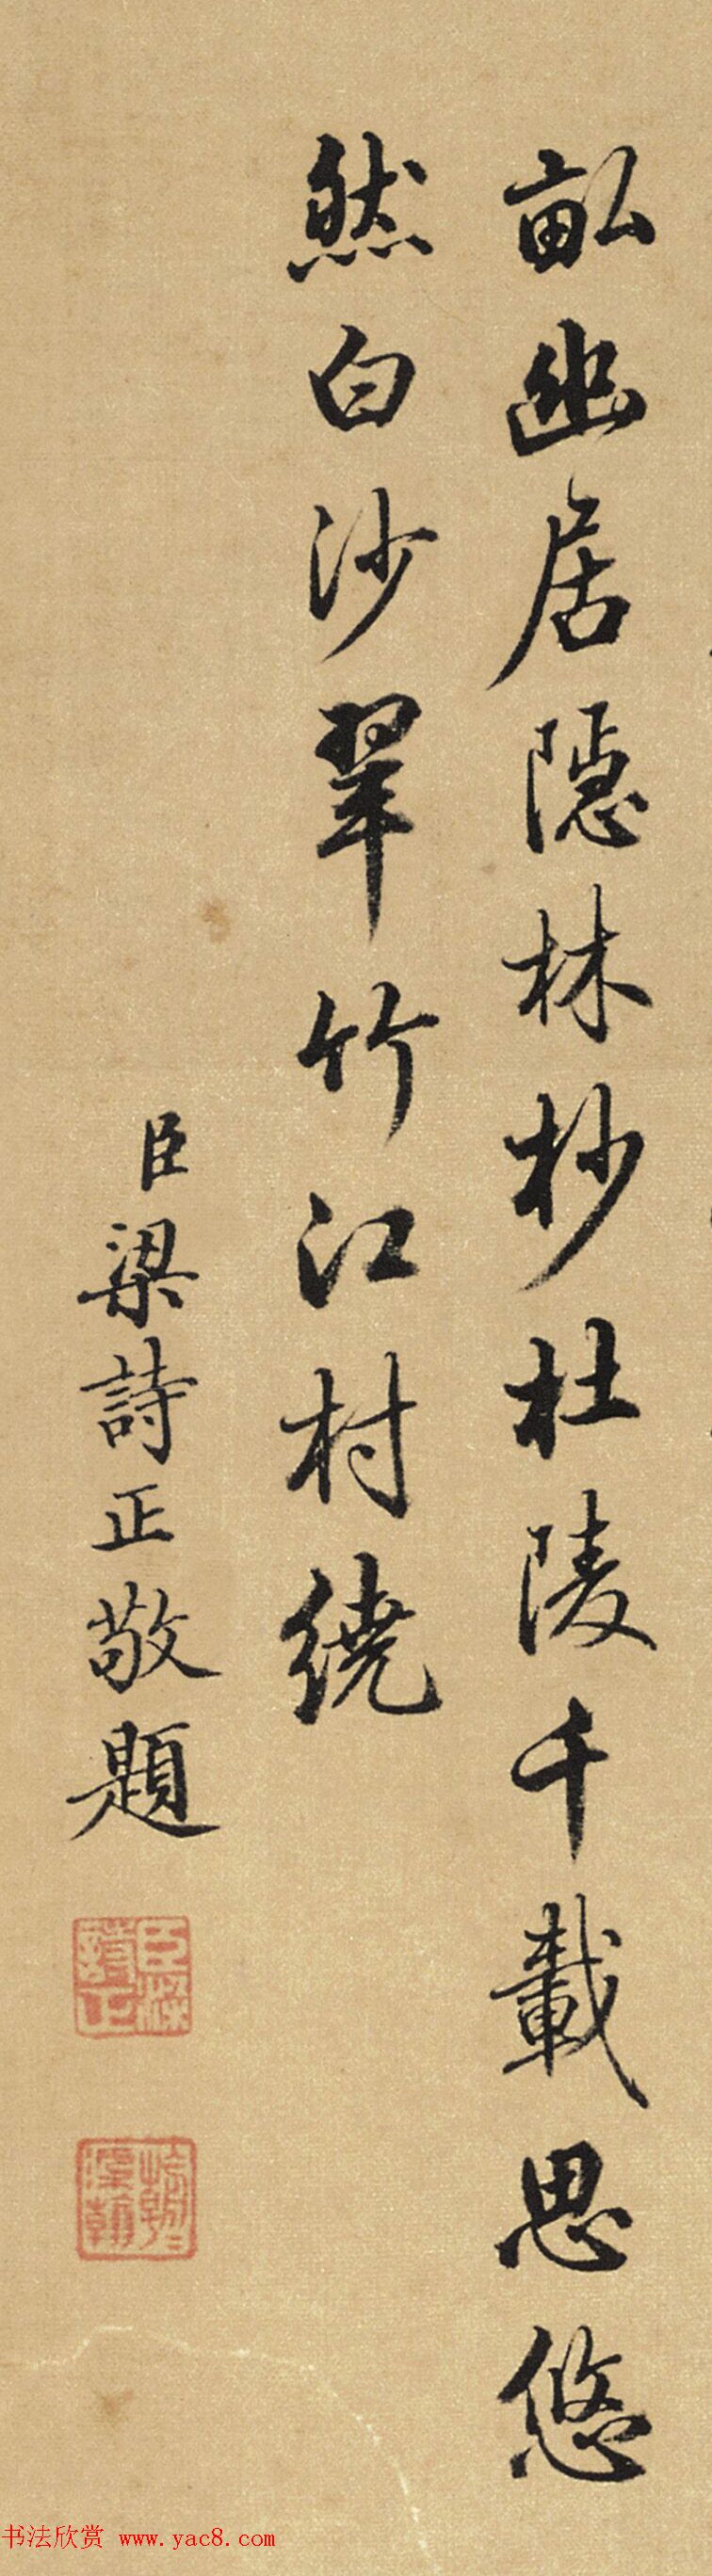 畝幽居隱林杪杜陵千載思悠
然白沙翠竹江村繞
臣梁詩正敬題
臣梁詩正
书法欣赏 www.yac8.com